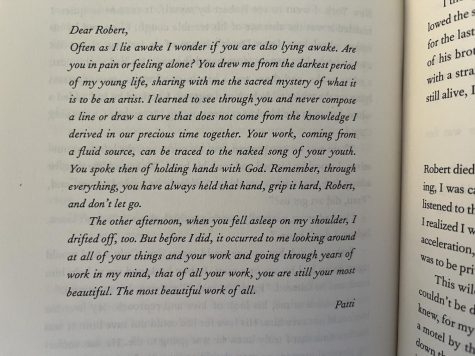 Dear Robert,
Often as I lie awake I wonder if you are also lying awake. Are
you in pain or feeling alone? You drew me from the darkest period
of my young life, sharing with me the sacred mystery of what it
is to be an artist. I learned to see through you and never compose
a line or draw a curve that does not come from the knowledge I
derived in our precious time together. Your work, coming from
a fluid source, can be traced to the naked song of your youth.
You spoke then of holding hands with God. Remember, through
everything, you have always held that hand, grip it hard, Robert,
and don't let go.
The other afternoon, when you fell asleep on my shoulder, I
drifted off, too. But before I did, it occurred to me looking around
at all of your things and your work and going through years of
work in my mind, that of all your work, you are still your most
beautiful. The most beautiful work of all.
Patti
lowed the s
for the last
of his brot
with a stra
still alive, I
Robert died
ing, I was ca
listened to th
I realized I w
acceleration,
was to be pri
This wil
couldn't be d
knew, for my
a motel by th
down th